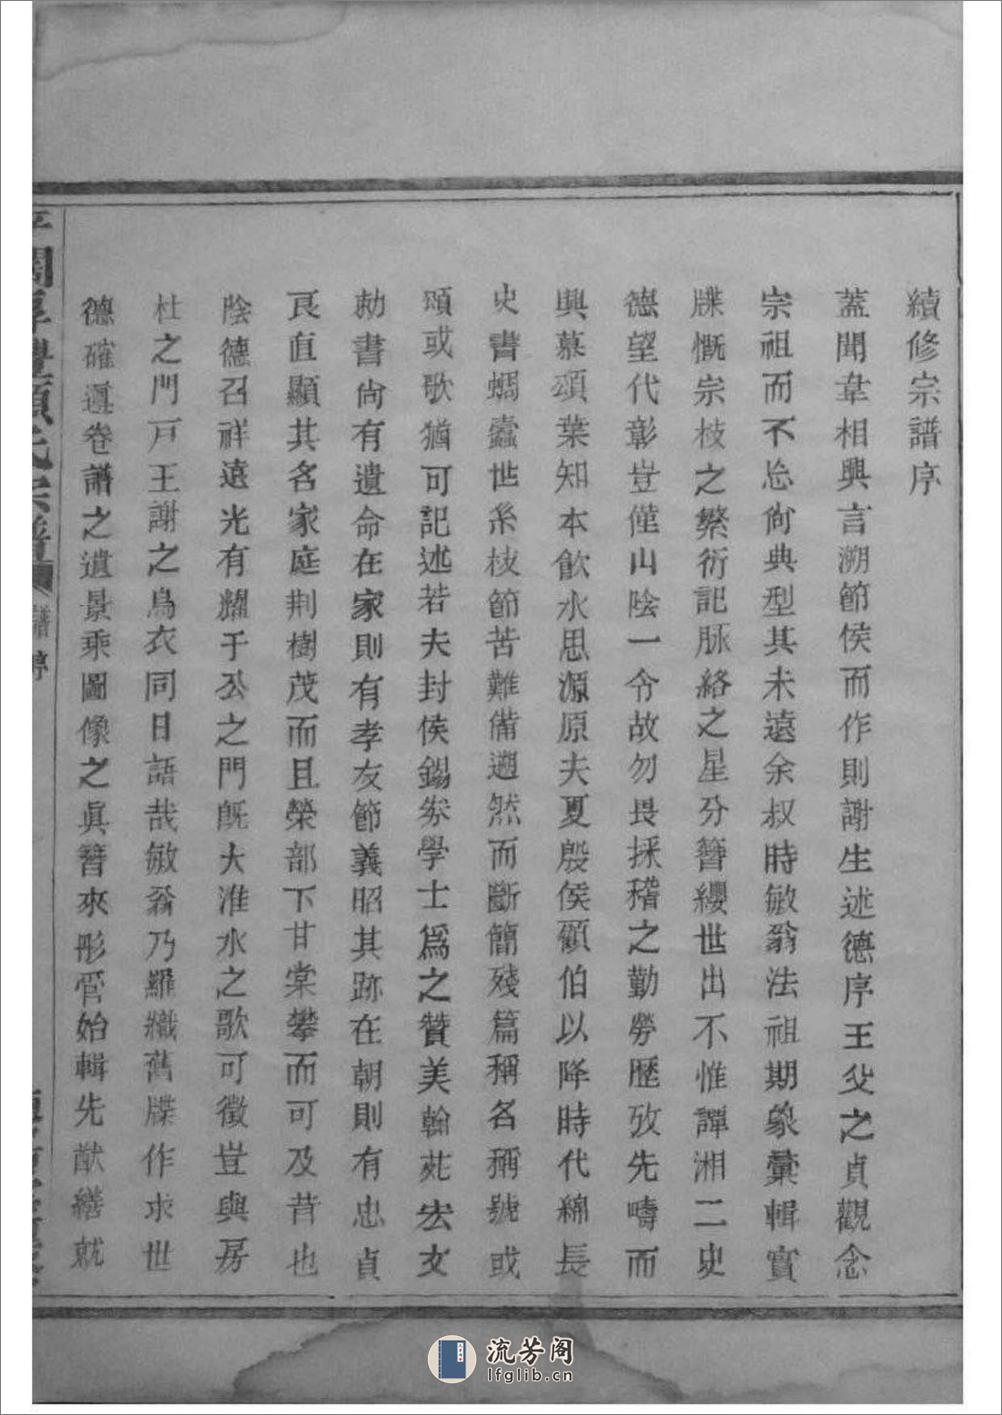 續修宗譜序
蓋聞韋相興言溯節侯而作則謝生述德序王父之貞觀念
宗祖而不忘尙典型其未遠余叔時敏翁法祖期象彙輯實
牒慨宗枝之繁衍記脈絡之星分簪纓世出不惟譚湘二史
德望代彰豈僅山陰一令故勿畏採稽之勤勞歷攷先疇而
興慕頌葉知本飮水思源原夫夏殷侯顧伯以降時代綿長
史書蠲蠹世系枝節苦難備遡然而斷簡殘篇稱名稱號或
頌或歌猶可記述若夫封侯錫券學士爲之贊美翰苑宏文
勅書尙有遺命在家則有孝友節義昭其跡在朝則有忠貞
良直顯其名家庭荆樹茂而且榮部下甘棠攀而可及昔也
陰德召祥遠光有耀于公之門旣大淮水之歌可徵豈與房
杜之門戶王謝之烏衣同日語哉敏翁乃羅織舊牒作求世
德確遵卷譜之遺景乘圖像之眞簪來彤管始輯先猷繕就
譜序
流芳阁
lfglib.cn